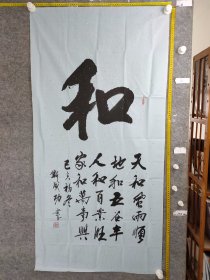 和
天和雲雨順
地和五谷丰
人和百業旺
家和萬事興
己亥初冬